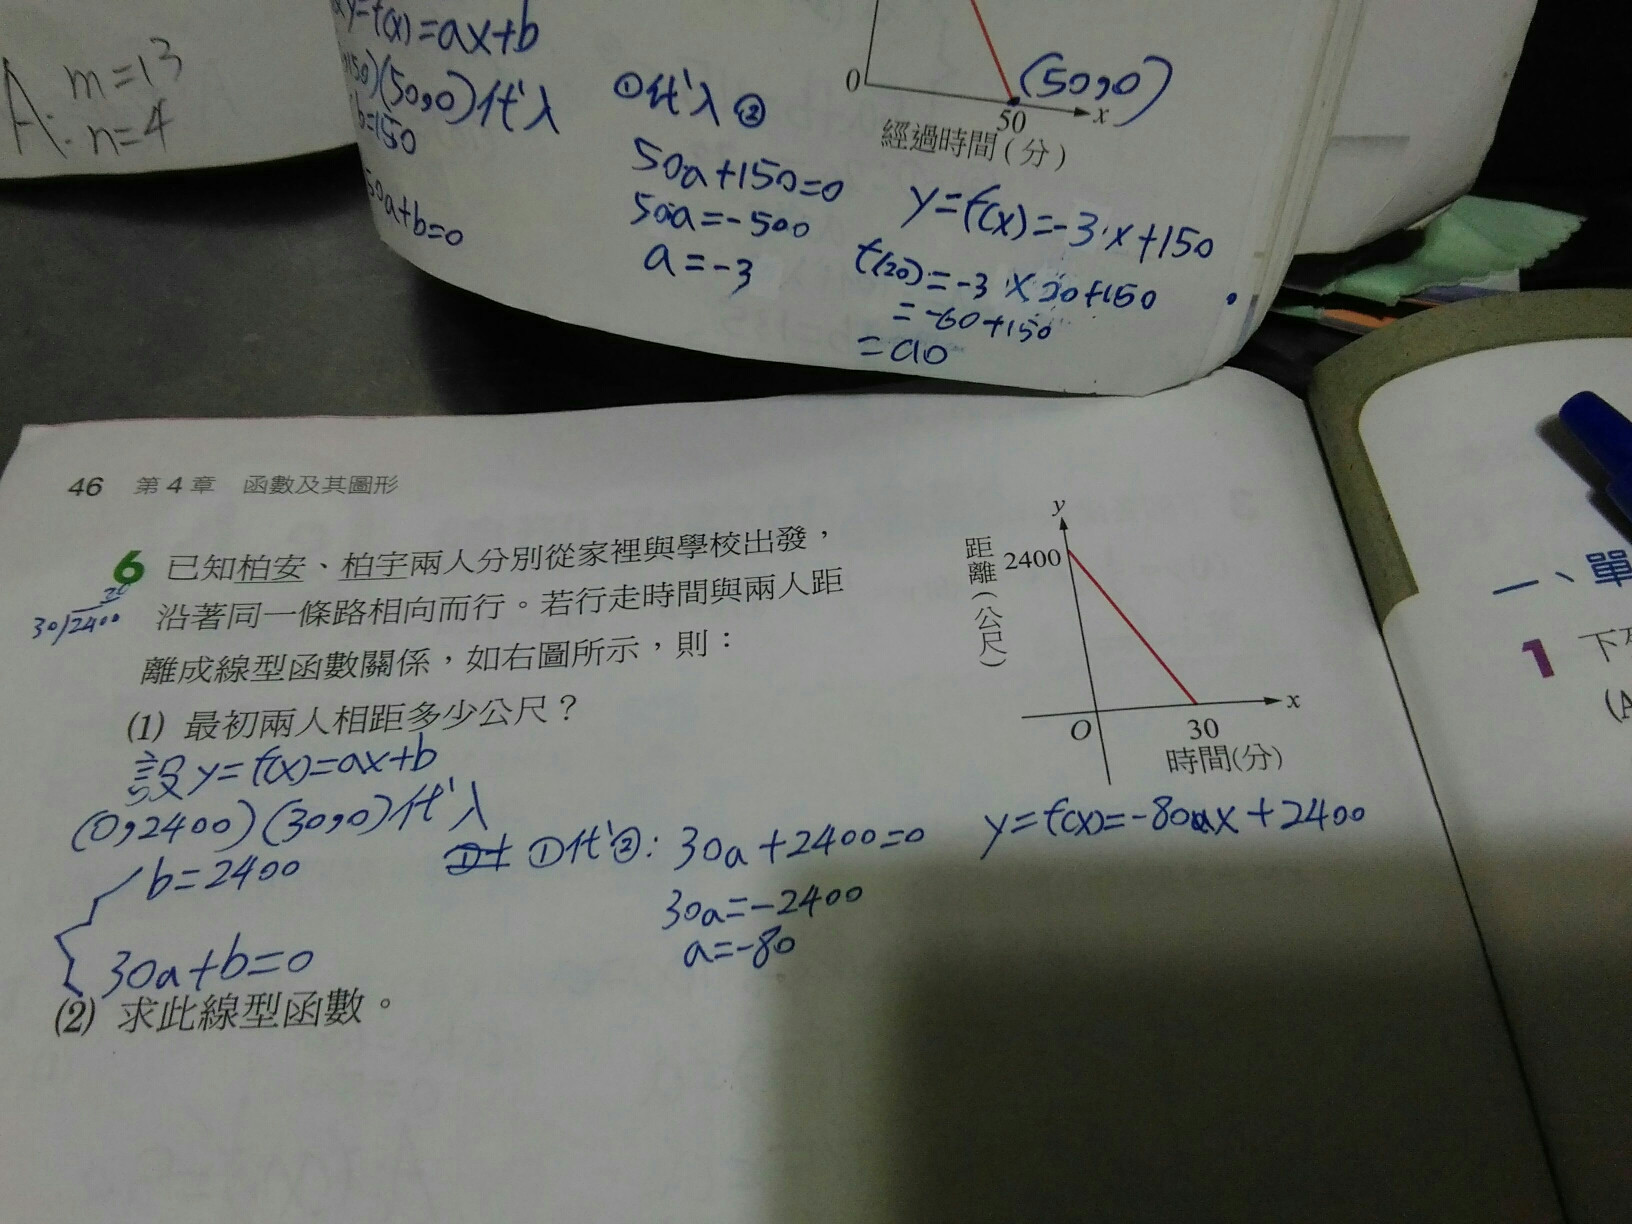 A: m=13
n=4
y=f(x)=ax+b
(50,0)代入
b=150
50a+b=0
①代入②
50a+150=0
50a=-500
a=-3
0
50
x
(50,0)
經過時間(分)
y=f(x)=-3·x+150
f(20)=-3×20+150
=-60+150
=90
46 第4章 函數及其圖形
6 已知柏安、柏宇兩人分別從家裡與學校出發，
沿著同一條路相向而行。若行走時間與兩人距
離成線型函數關係，如右圖所示，則：
30)2400
(1) 最初兩人相距多少公尺？
設y=f(x)=ax+b
(0,2400)(30,0)代入
b=2400
30a+b=0
①代②: 30a+2400=0
30a=-2400
a=-80
y=f(x)=-80x+2400
(2) 求此線型函數。
y
距離(公尺)
2400
O
30
x
時間(分)
一、單
1 下
(A